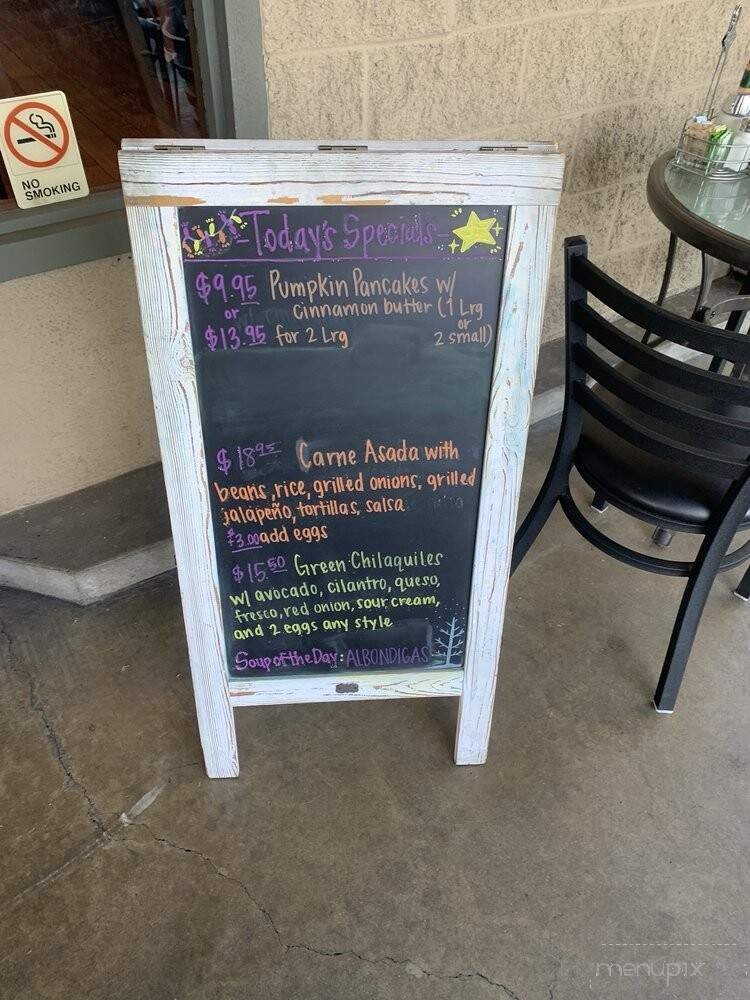 NO
SMOKING
Today's Specials
$9.95 Pumpkin Pancakes w/
or cinnamon butter (1 Lrg
or
$13.95 for 2 Lrg 2 small)
$18.95 Carne Asada with
beans, rice, grilled onions, grilled
jalapeño, tortillas, salsa
$3.00 add eggs
$15.50 Green Chilaquiles
w/ avocado, cilantro, queso,
fresco, red onion, sour cream,
and 2 eggs any style
Soup of the Day: ALBONDIGAS
menupix